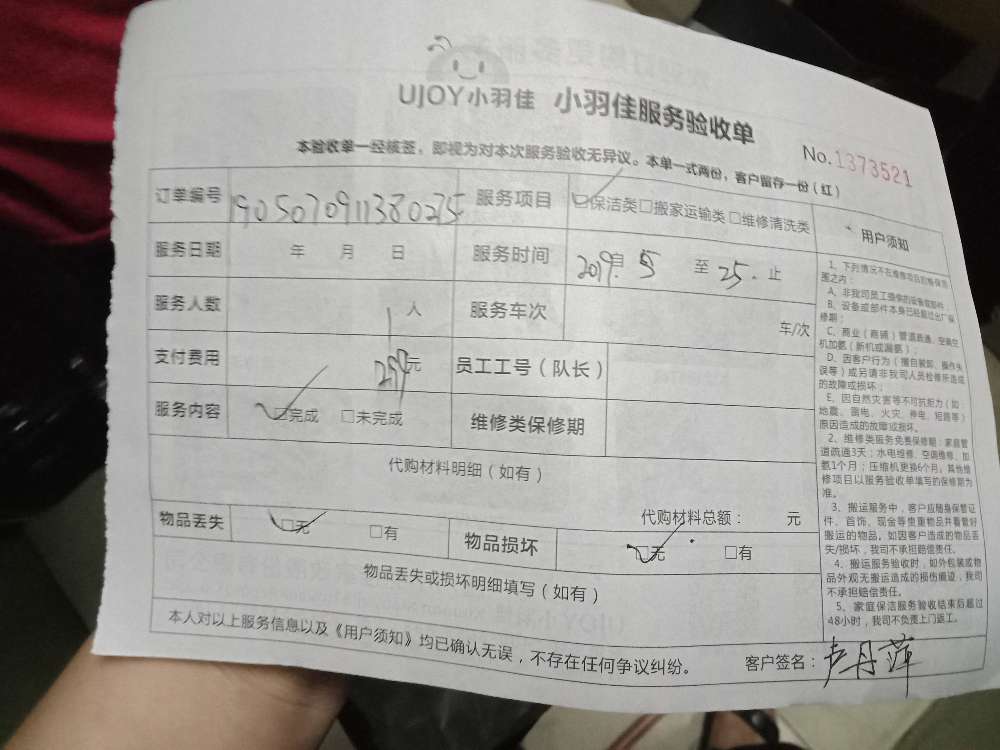 UJOY小羽佳 小羽佳服务验收单
No.1373521
本验收单一经核签，即视为对本次服务验收无异议。本单一式两份，客户留存一份（红）
订单编号 1905070911380275 服务项目 ☑保洁类□搬家运输类□维修清洗类
服务日期 年 月 日 服务时间 2019. 5 至 25. 止
服务人数 1人 服务车次 车/次
支付费用 元 员工工号（队长）
服务内容 ☑完成 □未完成 维修类保修期
代购材料明细（如有）
代购材料总额： 元
物品丢失 ☑无 □有 物品损坏 ☑无 □有
物品丢失或损坏明细填写（如有）
本人对以上服务信息以及《用户须知》均已确认无误，不存在任何争议纠纷。 客户签名：卢丹萍
用户须知
1、下列情况不在维修项目的维保范
围之内：
A、非我司员工提供的设备或部件
B、设备或部件本身已经超过出厂保
修期；
C、商业（商铺）管道疏通，空调空
机加氨（新机或漏氨）；
D、因客户行为（擅自装卸、操作失
误等）或另请非我司人员检修所造成
的故障或损坏；
E、因自然灾害等不可抗拒力（如：
地震、雷电、火灾、停电、短路等）
原因造成的故障或损坏。
2、维修类服务免费保修期：家庭管
道疏通3天；水电维修、空调维修、加
氨1个月；压缩机更换6个月，其他维
修项目以服务验收单填写的保修期为
准。
3、搬运服务中，客户应随身保管证
件、首饰、现金等贵重物品并看管好
搬运的物品。如因客户造成的物品丢
失/损坏，我司不承担赔偿责任。
4、搬运服务验收时，如外包装或物
品外观无搬运造成的损伤痕迹，我司
不承担赔偿责任。
5、家庭保洁服务验收结束后超过
48小时，我司不负责上门返工。